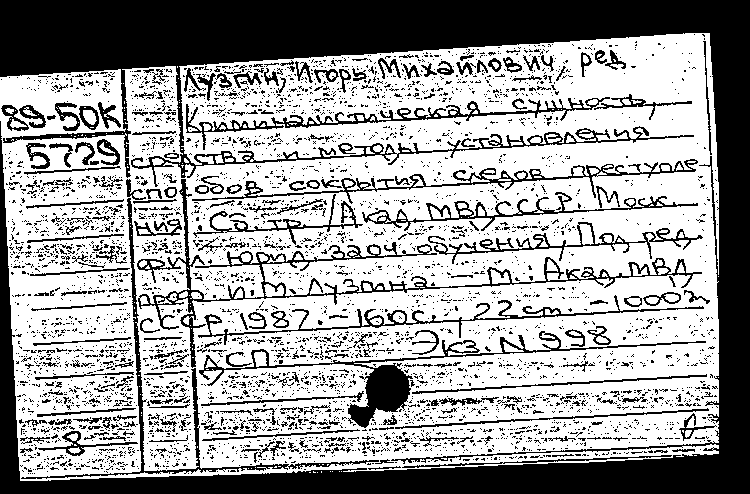 Лузгин, Игорь Михайлович, ред.
89-50К
5729
Криминалистическая сущность,
средства и методы установления
способов сокрытия следов преступле-
ния : Сб. тр. / Акад. МВД СССР. Моск.
фил. юрид. заоч. обучения; Под ред.
проф. И.М. Лузгина. – М.: Акад. МВД
СССР, 1987. – 160с.; 22 см. – 1000э.
ДСП. Экз. N 998.
8